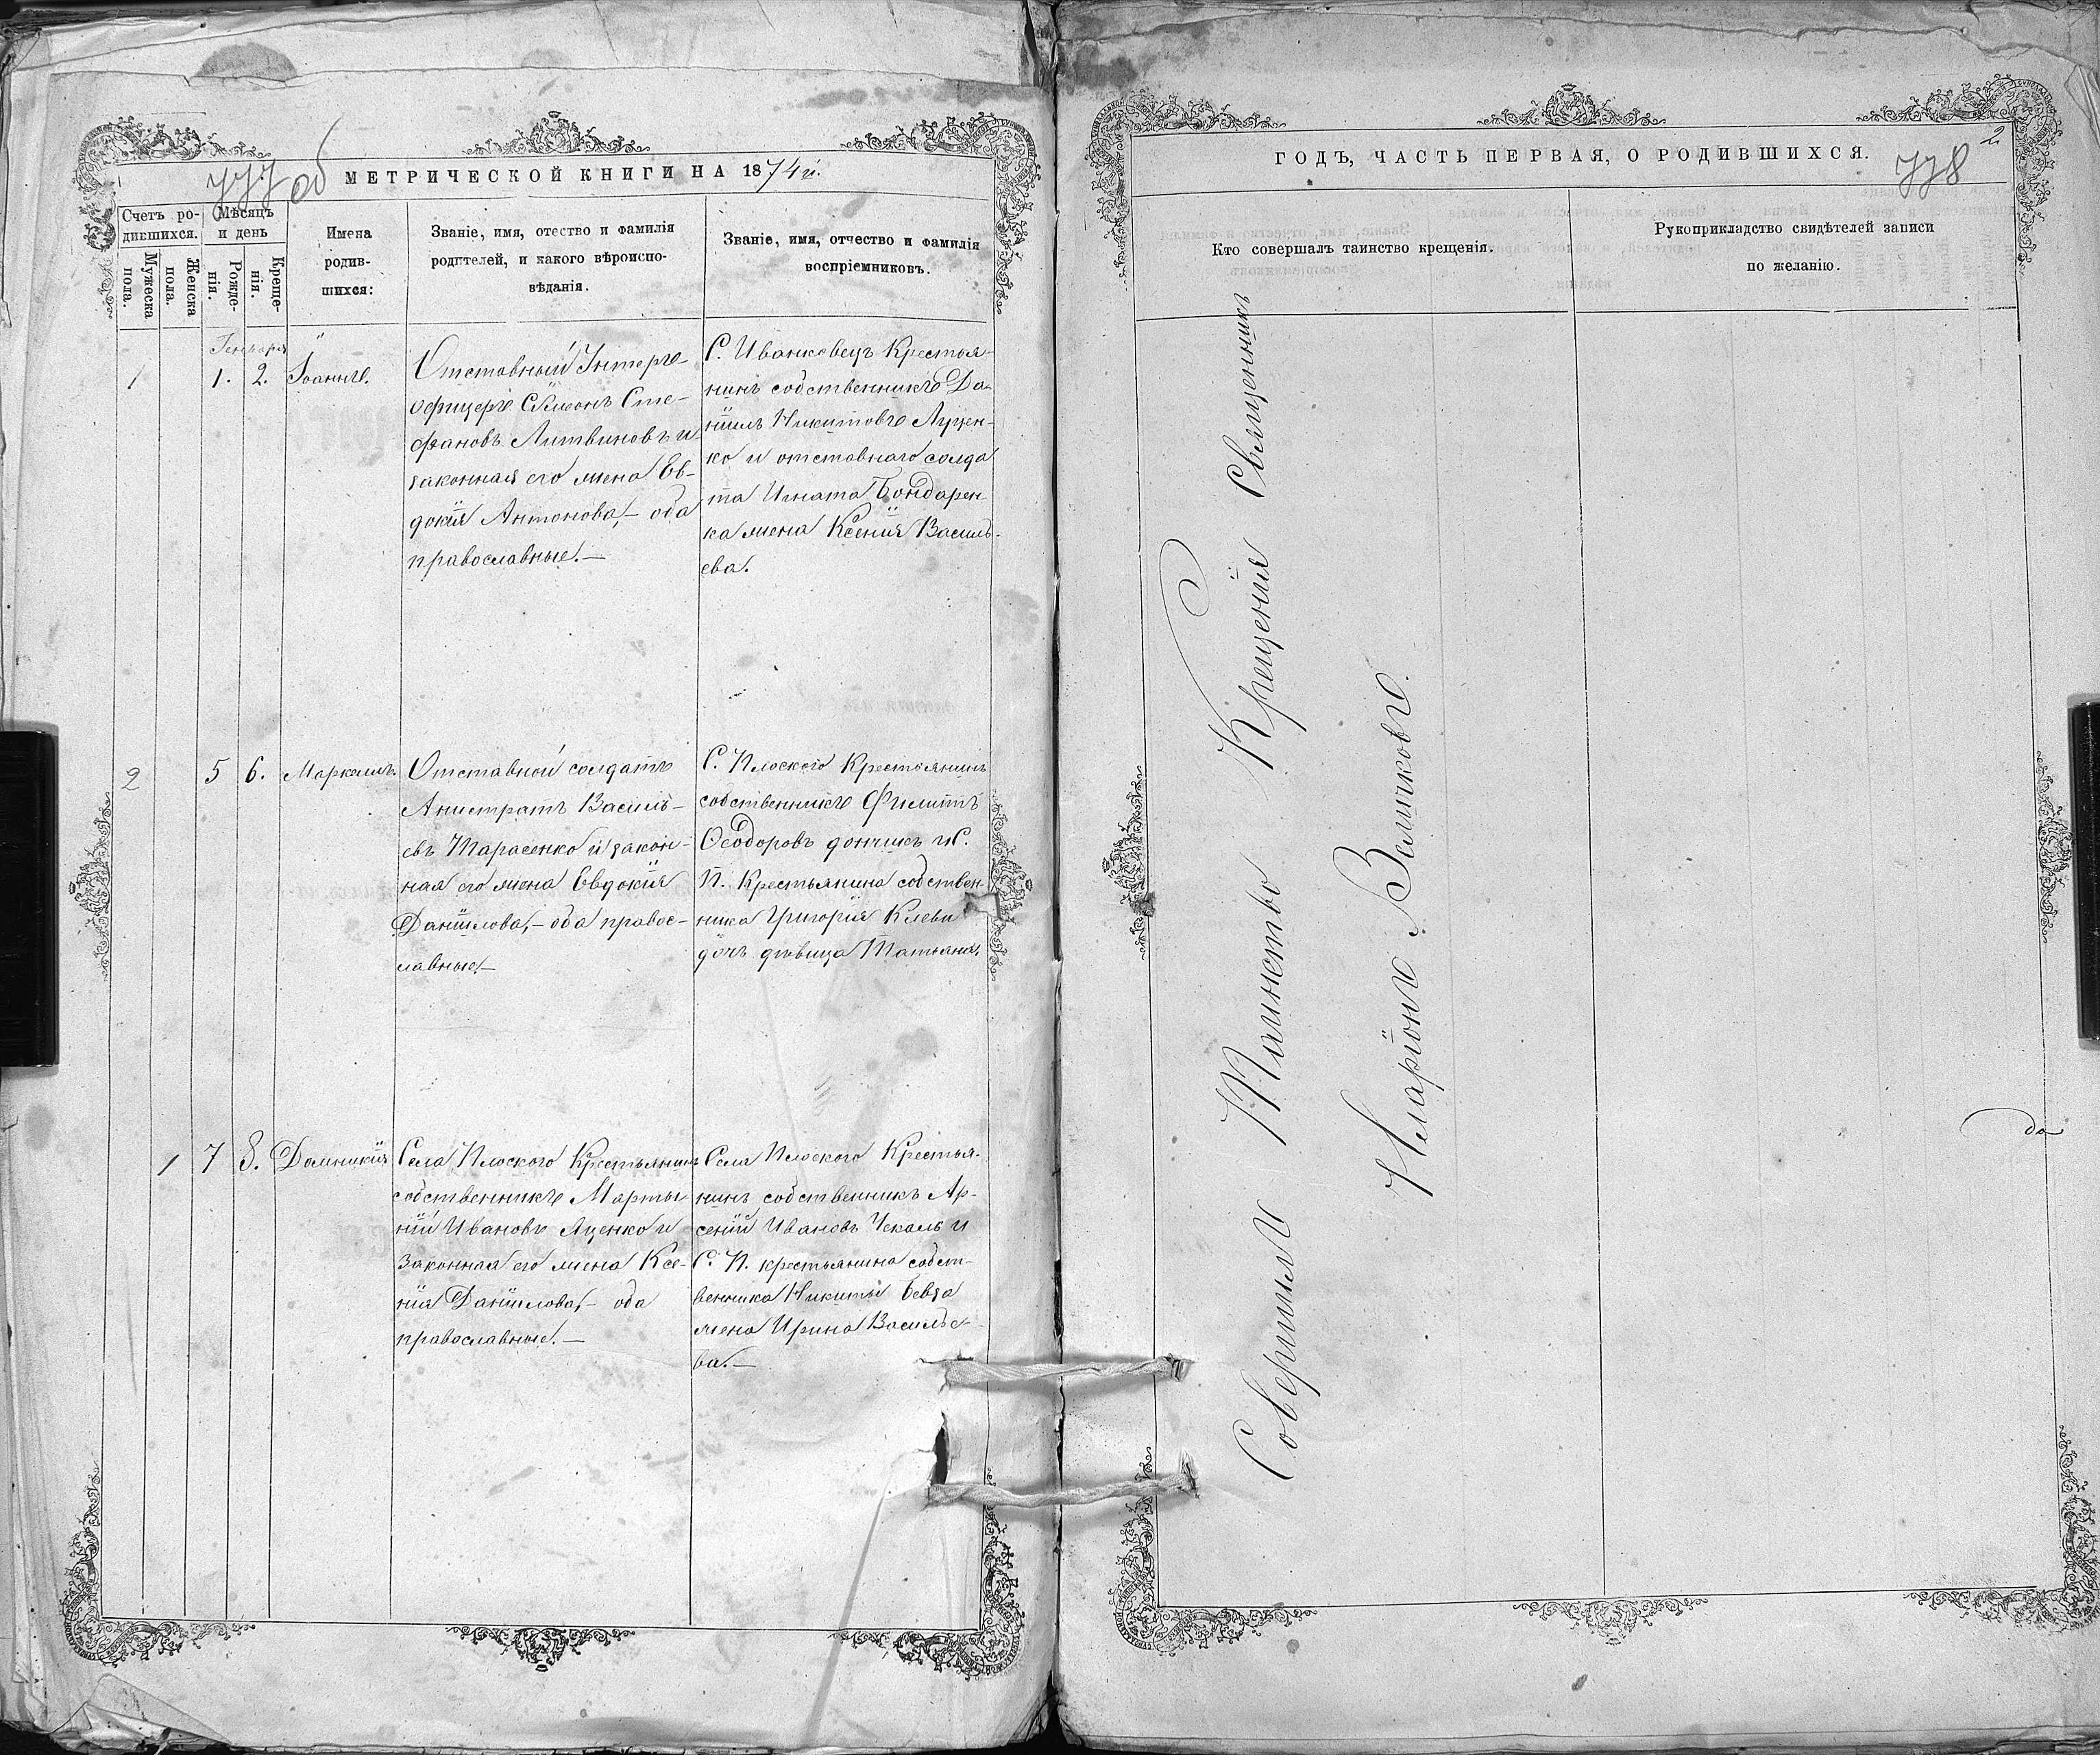 777 об
МЕТРИЧЕСКОЙ КНИГИ НА 1874 й.
Счетъ ро-
дившихся.
Мужеска
пола.
Женска
пола.
Мѣсяцъ
и день
Рожде-
нія.
Креще-
нія.
Имена
родив-
шихся:
Званіе, имя, отество и фамилія
родителей, и какого вѣроиспо-
вѣданія.
Званіе, имя, отчество и фамилія
воспріемниковъ.
Генваря
1
1. 2.
Іоаннъ.
Отставный Унтеръ-
офицеръ Сѵмеонъ Сте-
фановъ Литвиновъ и
законная его жена Ев-
докія Антонова,- оба
православные.-
С. Иванковецъ Крестья-
нинъ собственникъ Да-
ніилъ Никитовъ Луцен-
ко и отставнаго солда
та Игната Бондарен
ка жена Ксенія Василь-
ева.
2
5 6.
Маркеллъ.
Отставной солдатъ
Анистратъ Василь-
евъ Тарасенко и закон-
ная его жена Евдокія
Даніилова,- оба правос-
лавные.-
С. Плоского Крестьянинъ
собственникъ Филиппъ
Ѳеодоровъ и С.
П. Крестьянина собствен-
ника Григорія
дочь дѣвица Татьяна.
1
7 8.
Домникія
Села Плоского Крестьянинъ
собственникъ Марты-
ній Ивановъ Яценко и
законная его жена Ксе-
нія Даніилова,- оба
православные.-
Села Плоского Крестья-
нинъ собственникъ Ар-
сеній Ивановъ Чекаль и
С. П. крестьянина собст-
венника Никиты Бевза
жена Ирина Василье-
ва.-
ГОДЪ, ЧАСТЬ ПЕРВАЯ, О РОДИВШИХСЯ.
2
778
Кто совершалъ таинство крещенія.
Рукоприкладство свидѣтелей записи
по желанію.
Совершилъ Таинство Крещенія Священникъ
Иларіонъ Величковъ.